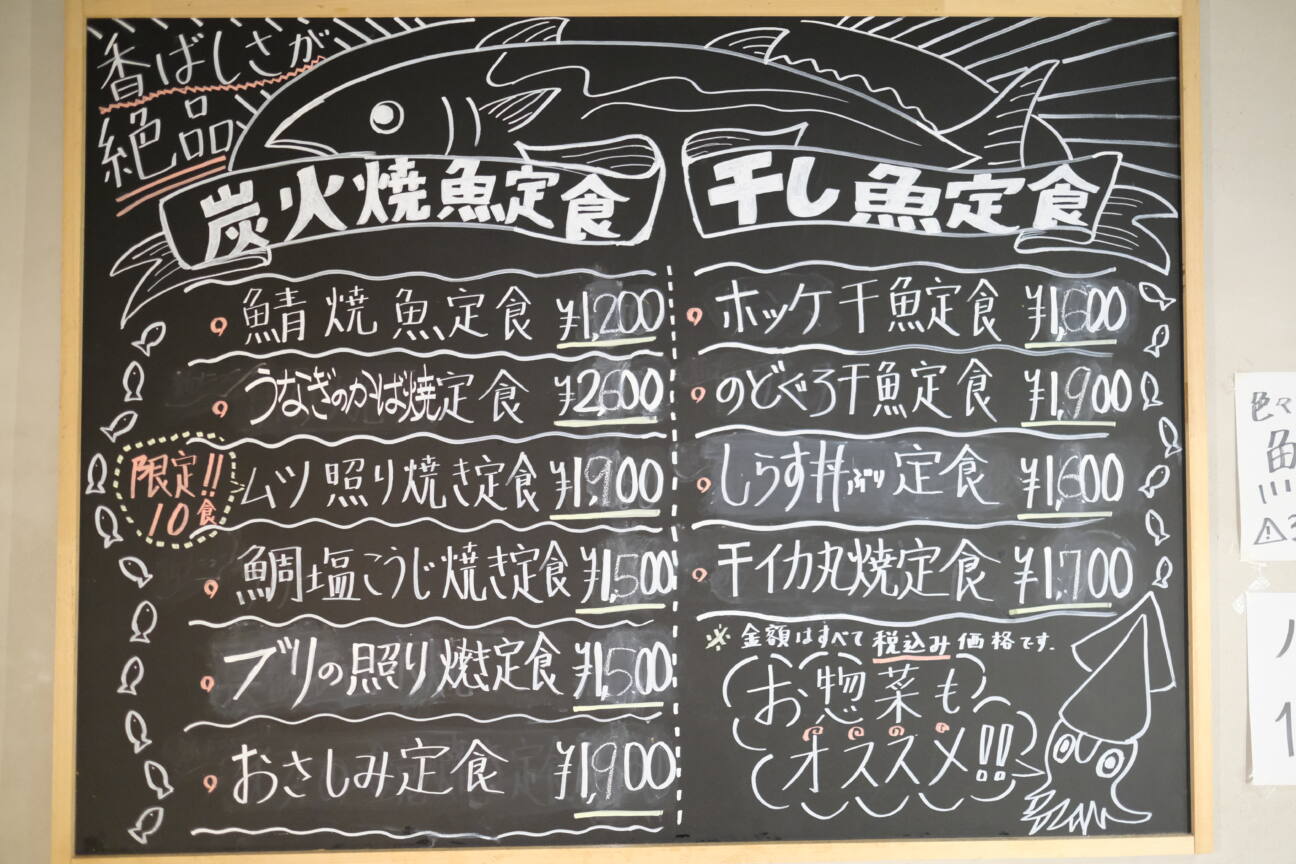 香ばしさが
絶品
炭火焼魚定食
鯖焼魚定食 ¥1,200
うなぎのかば焼定食 ¥2,600
限定!!
10食
ムツ照り焼き定食 ¥1,900
鯛塩こうじ焼き定食 ¥1,500
ブリの照り焼き定食 ¥1,500
おさしみ定食 ¥1,900
干し魚定食
ホッケ干魚定食 ¥1,600
のどぐろ干魚定食 ¥1,900
しらす丼ぶり定食 ¥1,600
干イカ丸焼定食 ¥1,700
※金額はすべて税込み価格です.
お惣菜も
オススメ!!
色々
魚